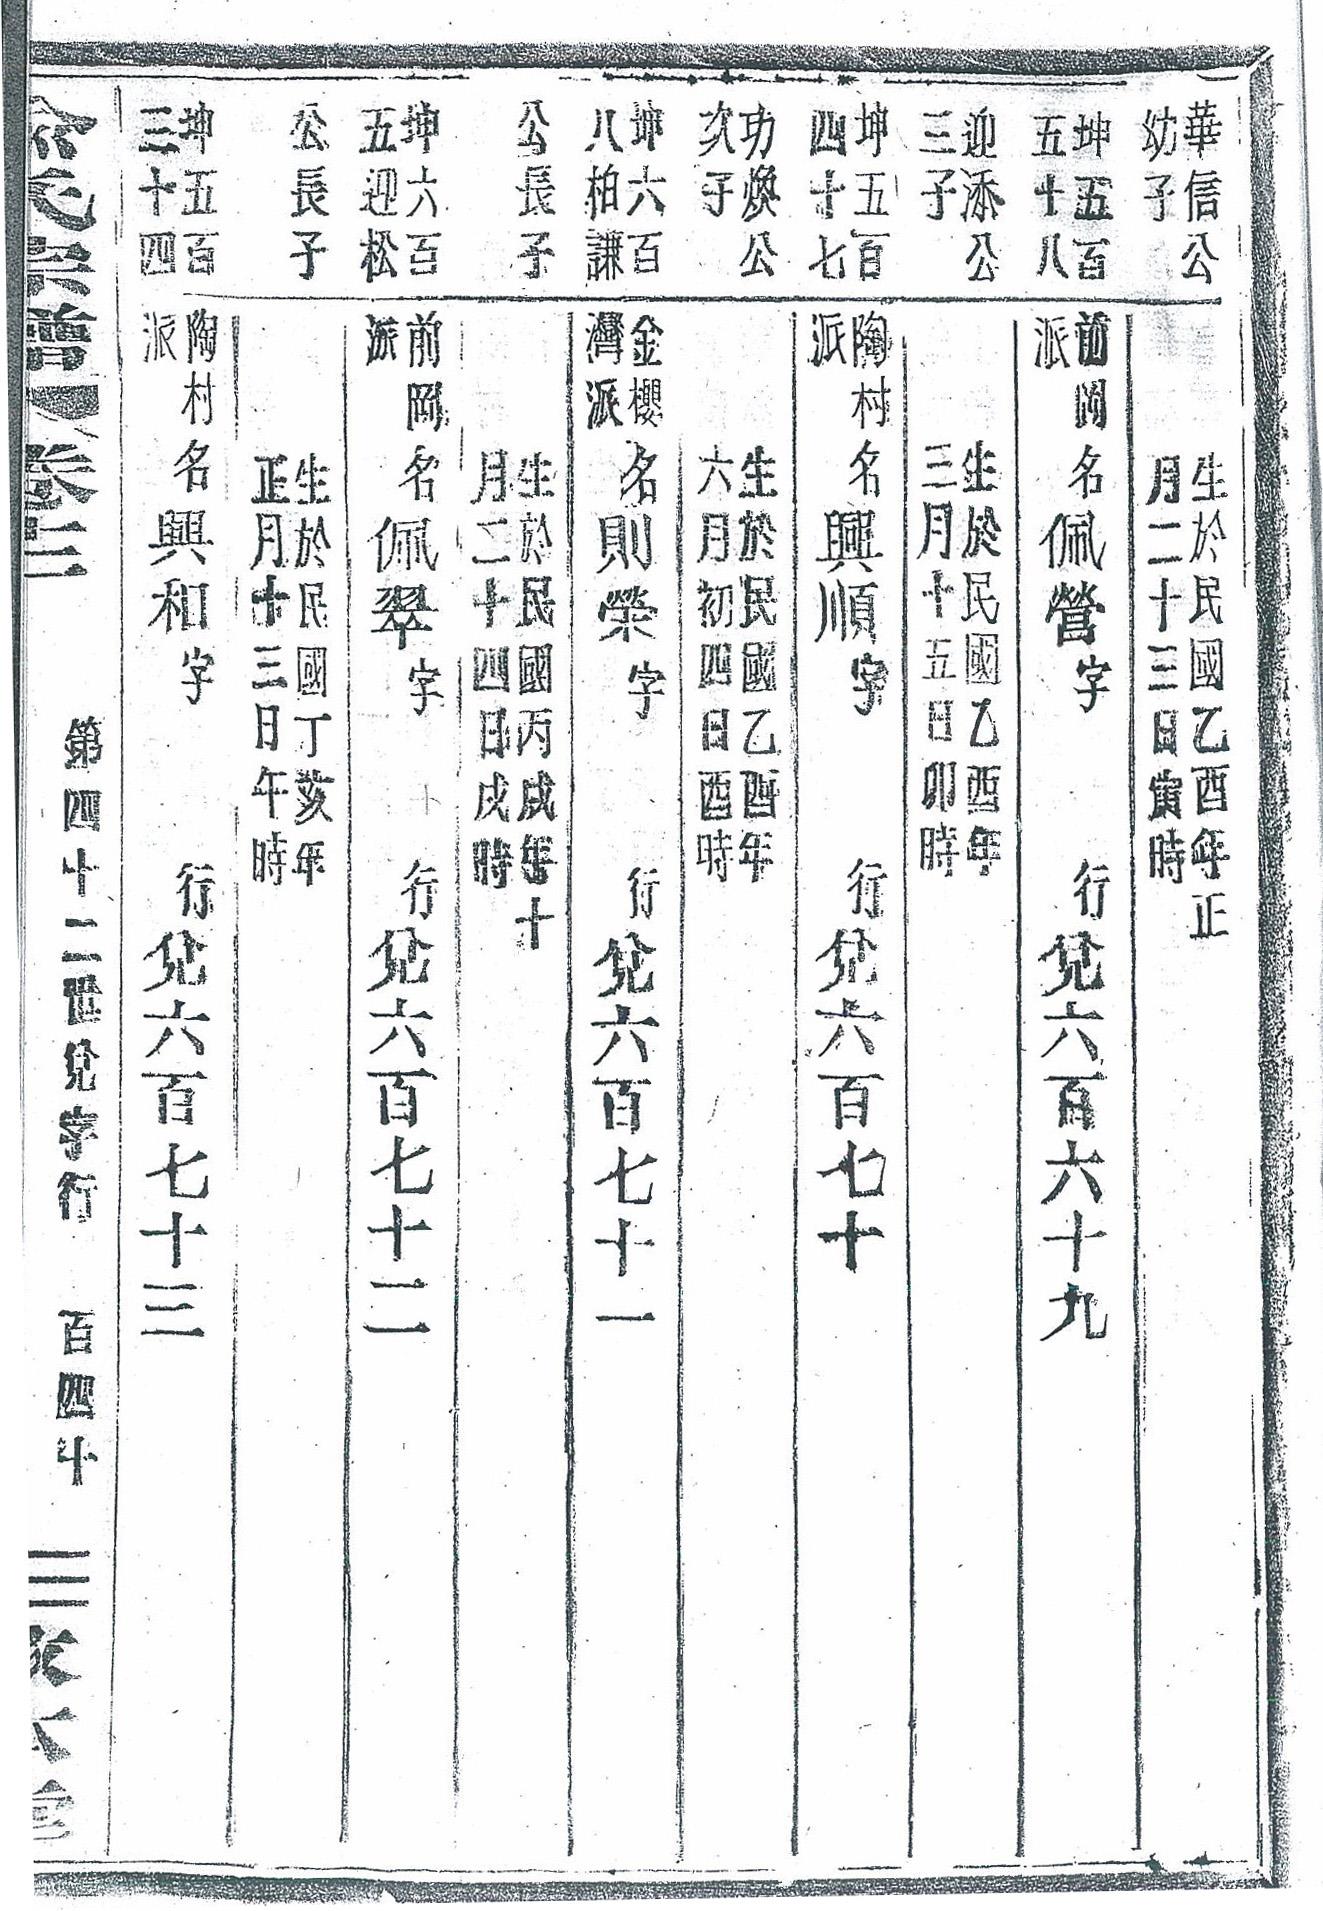 華信公
幼子
生於民國乙酉年正
月二十三日寅時
坤五百
五十八
前岡
派
名佩營字 行兌六百六十九
迎添公
三子
生於民國乙酉年
三月十五日卯時
坤五百
四十七
陶村
派
名興順字 行兌六百七十
功煥公
次子
生於民國乙酉年
六月初四日酉時
坤六百
八柏謙
公長子
金櫻
灣派
名則榮字 行兌六百七十一
生於民國丙戌年十
月二十四日戌時
坤六百
五迎松
公長子
前岡
派
名佩翠字 行兌六百七十二
生於民國丁亥年
正月十三日午時
坤五百
三十四
陶村
派
名興和字 行兌六百七十三
第四十二世兌字行 百四十
氏宗譜 卷三